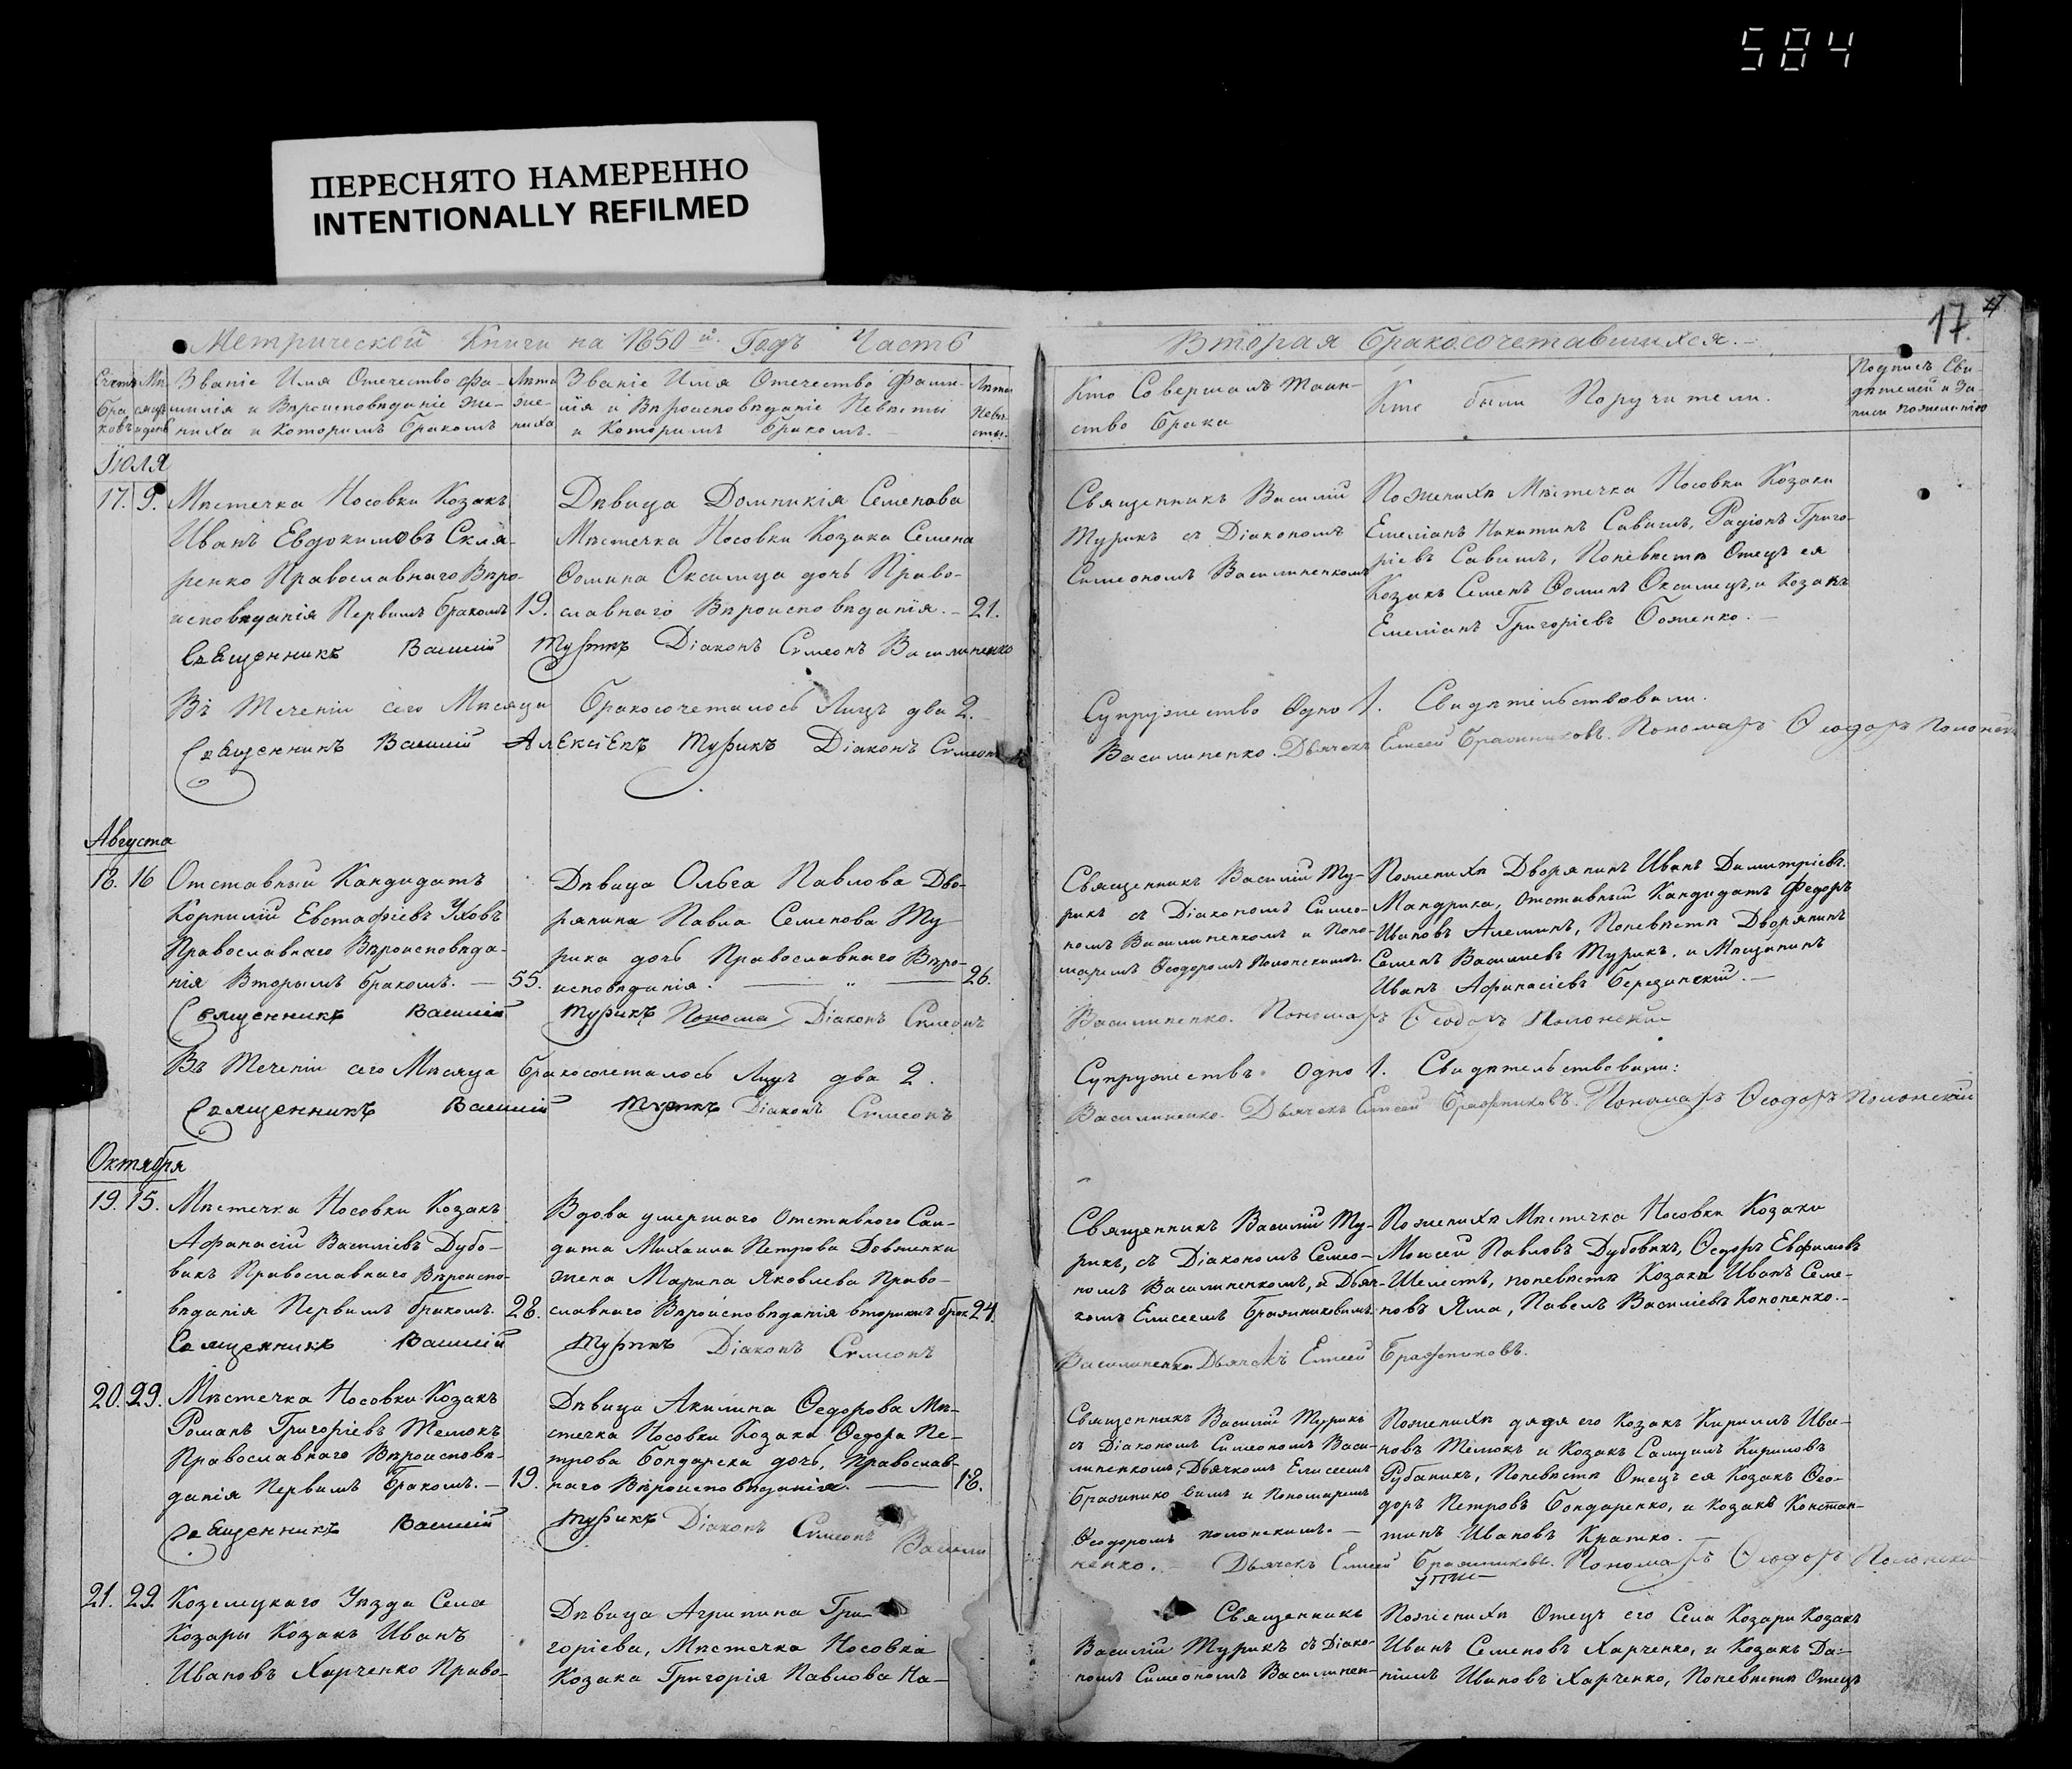 584
ПЕРЕСНЯТО НАМЕРЕННО
INTENTIONALLY REFILMED
17.
Метрической Книги на 1850 й. Годъ Часть
Вторая бракосочетавшихся.
Счетъ браковъ
Мѣсяцъ и день
Званіе Имя Отечество Фа-
милія и Вѣроисповѣданіе Же-
ниха и Которимъ бракомъ
Лѣта
же-
ниха
Званіе Имя Отечество Фами-
лія и Вѣроисповѣданіе Невѣсты
и Которимъ бракомъ.
Лѣта
Невѣ-
сты.
Кто Совершалъ Таин-
ство брака
Кто были Поручители.
Подпись Сви-
дѣтелей и За-
писи по желанію
Іюля
17. 9. Мѣстечка Носовки Козакъ
Иванъ Евдокимовъ Скля-
ренко Православнаго Вѣро-
исповѣданія Первымъ бракомъ 19.
Дѣвица Домникія Семенова
Мѣстечка Носовки Козака Семена
Ѳомина Оксамца дочь Право-
славнаго Вѣроисповѣданія. 21.
Священникъ Василій
Турикъ съ Діакономъ
Симеономъ Василиненкомъ
Поженихѣ Мѣстечка Носовки Козаки
Емеліанъ Никитинъ Савишъ, Радіонъ Григо-
ріевъ Савишъ, Поневѣстѣ Отецъ ея
Козакъ Семенъ Ѳоминъ Оксамецъ, и Козакъ
Емеліанъ Григоріевъ Боженко.
Священникъ Василій Турикъ Діаконъ Симеонъ Василиненко
Въ Теченіи сего Мѣсяца бракосочеталось Лицъ два 2.
Супружество Одно 1. Свидѣтельствовали.
Священникъ Василій Алексіевъ Турикъ Діаконъ Симеонъ
Василиненко. Дьячекъ Елисей Бражниковъ. Пономарь Ѳеодоръ Полонскій
Августа
18. 16 Отставный Кандидатъ
Корнилій Евстафіевъ Уховъ
Православнаго Вѣроисповѣда-
нія Вторымъ бракомъ. 55.
Дѣвица Ольга Павлова Дво-
рянина Павла Семенова Ту-
рика дочь Православнаго Вѣро-
исповѣданія. 26.
Священникъ Василій Ту-
рикъ съ Діакономъ Симео-
номъ Василиненкомъ и Поно-
маремъ Ѳеодоромъ Полонскимъ.
Поженихѣ Дворянинъ Иванъ Димитріевъ
Мандрика, Отставный Кандидатъ Федоръ
Ивановъ Алеминъ, Поневѣстѣ Дворянинъ
Семенъ Василіевъ Турикъ, и Мѣщанинъ
Иванъ Афанасіевъ Березанскій.
Священникъ Василій Турикъ Діаконъ Симеонъ
Василиненко. Пономарь Ѳеодоръ Полонскій
Въ Теченіи сего Мѣсяца бракосочеталось Лицъ два 2.
Супружествъ Одно 1. Свидѣтельствовали:
Священникъ Василій Турикъ Діаконъ Симеонъ
Василиненко. Дьячекъ Елисей Бражниковъ. Пономарь Ѳеодоръ Полонскій
Октября
19. 15. Мѣстечка Носовки Козакъ
Афанасій Василіевъ Дубо-
викъ Православнаго Вѣроиспо-
вѣданія Первымъ бракомъ. 28.
Вдова умершаго Отставного Сал-
дата Михаила Петрова Довженка
жена Марина Яковлева Право-
славнаго Вѣроисповѣданія вторымъ брак 24.
Священникъ Василій Ту-
рикъ, съ Діакономъ Симео-
номъ Василиненкомъ, и Дьяч-
комъ Елисеемъ Бражниковимъ
Поженихѣ Мѣстечка Носовки Козаки
Моисей Павловъ Дубовикъ, Ѳедоръ Евфимовъ
Шелестъ, поневѣстѣ Козаки Иванъ Семе-
новъ Яма, Павелъ Василіевъ Кононенко.
Священникъ Василій Турикъ Діаконъ Симеонъ
Василиненко Дьячекъ Елисей Бражниковъ.
20. 29. Мѣстечка Носовки Козакъ
Романъ Григоріевъ Темокъ
Православнаго Вѣроисповѣ-
данія Первымъ бракомъ. 19.
Дѣвица Акилина Ѳедорова Мѣ-
стечка Носовки Козака Ѳедора Пе-
трова Бондарска дочь, Православ-
наго Вѣроисповѣданія. 18.
Священникъ Василій Турикъ
съ Діакономъ Симеономъ Васи-
линенкомъ, Дьячкомъ Елисеемъ
Бражниковимъ и Пономаремъ
Ѳеодоромъ Полонскимъ.
Поженихѣ дядя его Козакъ Кириллъ Ива-
новъ Темокъ и Козакъ Самуилъ Кириловъ
Рубаникъ, Поневѣстѣ Отецъ ея Козакъ Ѳео-
доръ Петровъ Бондаренко, и Козакъ Констан-
тинъ Ивановъ Кратко.
Священникъ Василій Турикъ Діаконъ Симеонъ Васили
ненко. Дьячекъ Елисей Бражниковъ. Пономарь Ѳеодоръ Полонскій
21. 29. Козелецкаго Уѣзда Села
Козары Козакъ Иванъ
Ивановъ Харченко Право-
Дѣвица Агрипина Гри-
горіева, Мѣстечка Носовки
Козака Григорія Павлова На-
Священникъ
Василій Турикъ съ Діако-
номъ Симеономъ Василинен-
Поженихѣ Отецъ его Села Козари Козакъ
Иванъ Семеновъ Харченко, и Козакъ Да-
ніилъ Ивановъ Харченко, Поневѣстѣ Отецъ